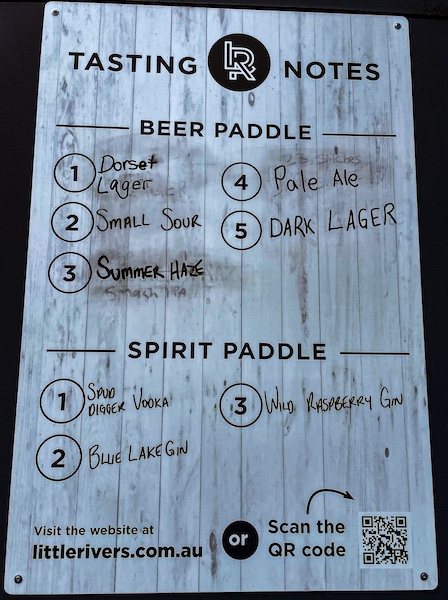 TASTING LR NOTES
BEER PADDLE
1 Dorset
Lager
2 SMALL SOUR
3 SUMMER HAZE
4 Pale Ale
5 DARK LAGER
SPIRIT PADDLE
1 SPUD
DIGGER VODKA
2 BLUE LAKE GIN
3 WILD RASPBERRY GIN
Visit the website at
littlerivers.com.au
or
Scan the
QR code